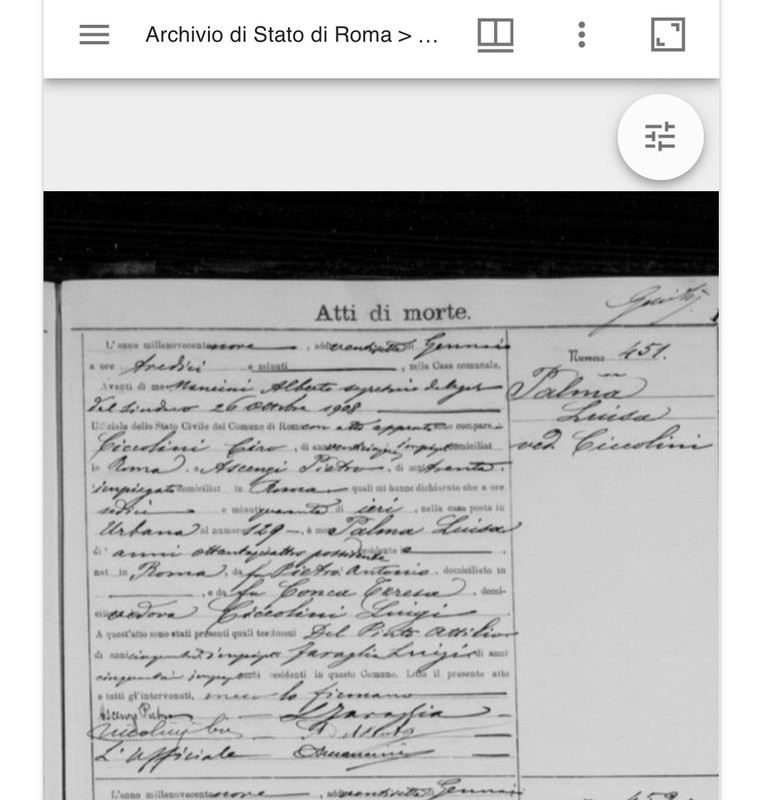 Archivio di Stato di Roma > ...
Atti di morte.
L'anno millenovecentonove, addì ventisette di Gennaio
a ore tredici e minuti, nella Casa comunale.
Avanti di me Mancini Alberto segretario delegato
del Sindaco 26 Ottobre 1908
Uffiziale dello Stato Civile del Comune di Roma con atto
Ciccolini Ciro, di anni domiciliat
in Roma, e Ascenzi Pietro, di anni trenta
impiegato domiciliat in Roma quali mi hanno dichiarato che a ore
e minuti quaranta di ieri, nella casa posta in
Urbana al numero 129, è mo Palma Luisa
di anni ottantaquattro possidente residente in
nat in Roma, da fu Pietro Antonio, domiciliato in
, e da fu Conca Teresa, domi-
vedova Ciccolini Luigi
A quest'atto sono stati presenti quali testimoni Del Pinto Attilio
di anni cinquanta Faraglia Luigi di anni
cinquanta residenti in questo Comune. Letto il presente atto
a tutti gl'intervenuti, meco lo firmano
Ascenzi Pietro L Faraglia
L'Uffiziale AMancini
Numero 451.
Palma
Luisa
ved. Ciccolini
L'anno millenovecentonove, addì ventisette di Gennaio